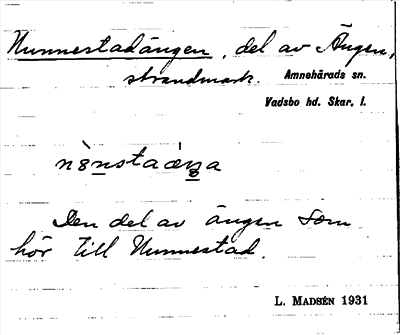 Nunnestadängen, del av Ängen,
strandmark. Amnehärads sn.
Vadsbo hd. Skar. l.
Den del av ängen som
hör till Nunnestad.
L. MADSÉN 1931